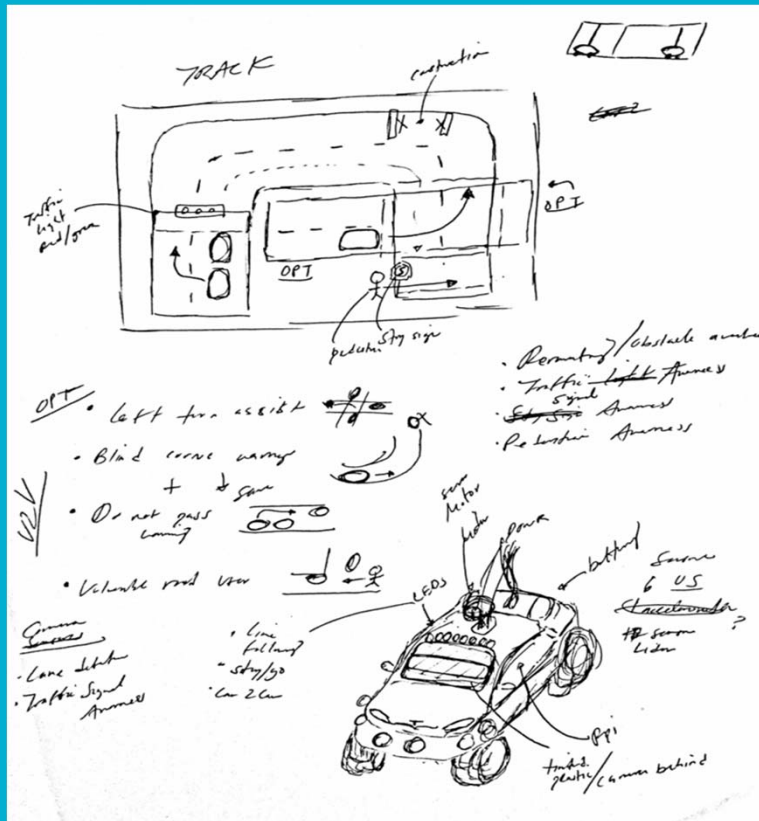 TRACK
construction
Traffic
light
red/green
OPT
OPT
pedestrian
Stop sign
/obstacle
Traffic light Awareness
signal
Stop Sign Awareness
Pedestrian Awareness
OPT
V2V
• Left turn assist
• Blind corner warning
+
• Do not pass
warning
• Vulnerable road user
Camera
• Lane
• Traffic Signal
Awareness
• Line
following
• Stop/go
• Car 2 Car
LEDS
servo
Motor
lidar
power
battery
6 US
accelerometer
servo
Lidar
?
RPi
tinted
plastic/camera behind